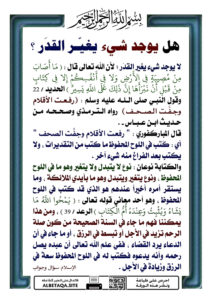 بسم الله الرحمن الرحيم
هل يوجد شيء يغير القدر ؟
لا يوجد شيء يغير القدر ؛ لأن الله تعالى قال : ( مَا أَصَابَ
مِنْ مُصِيبَةٍ فِي الْأَرْضِ وَلَا فِي أَنْفُسِكُمْ إِلَّا فِي كِتَابٍ
مِنْ قَبْلِ أَنْ نَبْرَأَهَا إِنَّ ذَلِكَ عَلَى اللَّهِ يَسِيرٌ ) الحديد / 22
وقول النبي صلى الله عليه وسلم : ( رفعت الأقلام
وجفت الصحف ) رواه الترمذي وصححه من
حديث ابن عباس .
قال المباركفوري : " رفعت الأقلام وجفت الصحف "
أي : كتب في اللوح المحفوظ ما كتب من التقديرات ، ولا
يكتب بعد الفراغ منه شيء آخر .
والكتابة نوعان : نوع لا يتبدل ولا يتغير وهو ما في اللوح
المحفوظ . ونوع يتغير ويتبدل وهو ما بأيدي الملائكة ، وما
يستقر أمره أخيراً عندهم هو الذي قد كتب في اللوح
المحفوظ ، وهو أحد معاني قوله تعالى : ( يَمْحُوا اللَّهُ مَا
يَشَاءُ وَيُثْبِتُ وَعِنْدَهُ أُمُّ الْكِتَابِ ) الرعد / 39 ، ومن هذا
يمكننا فهم ما جاء في السنة الصحيحة من كون صلة
الرحم تزيد في الأجل أو تبسط في الرزق ، أو ما جاء في أن
الدعاء يرد القضاء . ففي علم الله تعالى أن عبده يصل
رحمه وأنه يدعوه فكتب له في اللوح المحفوظ سعة في
الرزق وزيادة في الأجل .
الإسلام سؤال وجواب
ALBETAQA.SITE